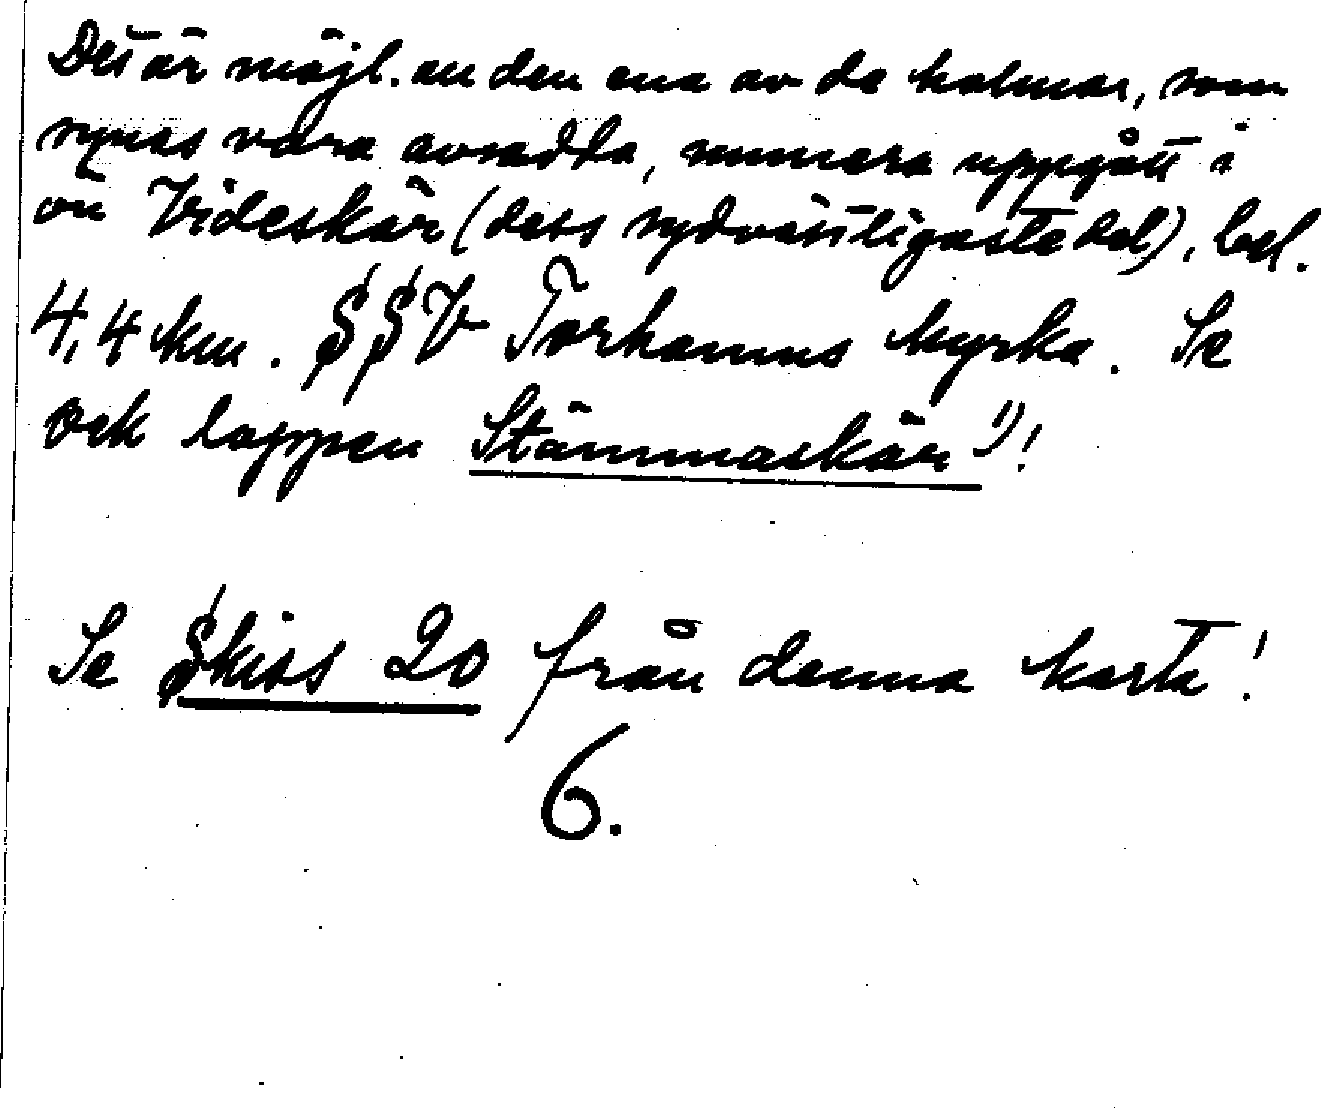 Det är möjl. att den ena av de holmar, som
synas vara avsedda, numera uppgått i
ön Videskär (dess sydvästligaste del), bel.
4,4 km. SSV Torhamns kyrka. Se
ock lappen Stämmaskär 1)!
Se Skiss 20 från denna karta!
6.